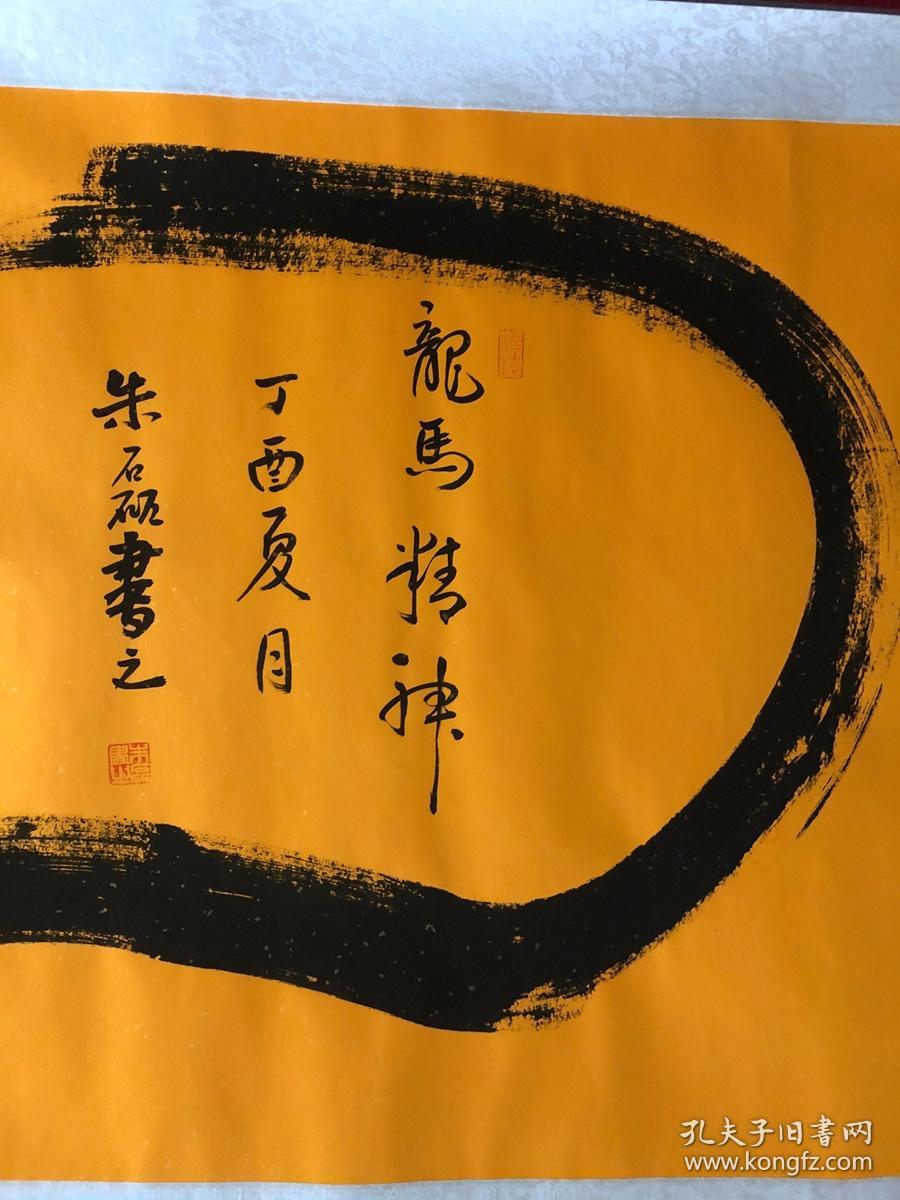 龍馬精神
丁酉夏月
朱石磊書之
孔夫子旧書网
www.kongfz.com